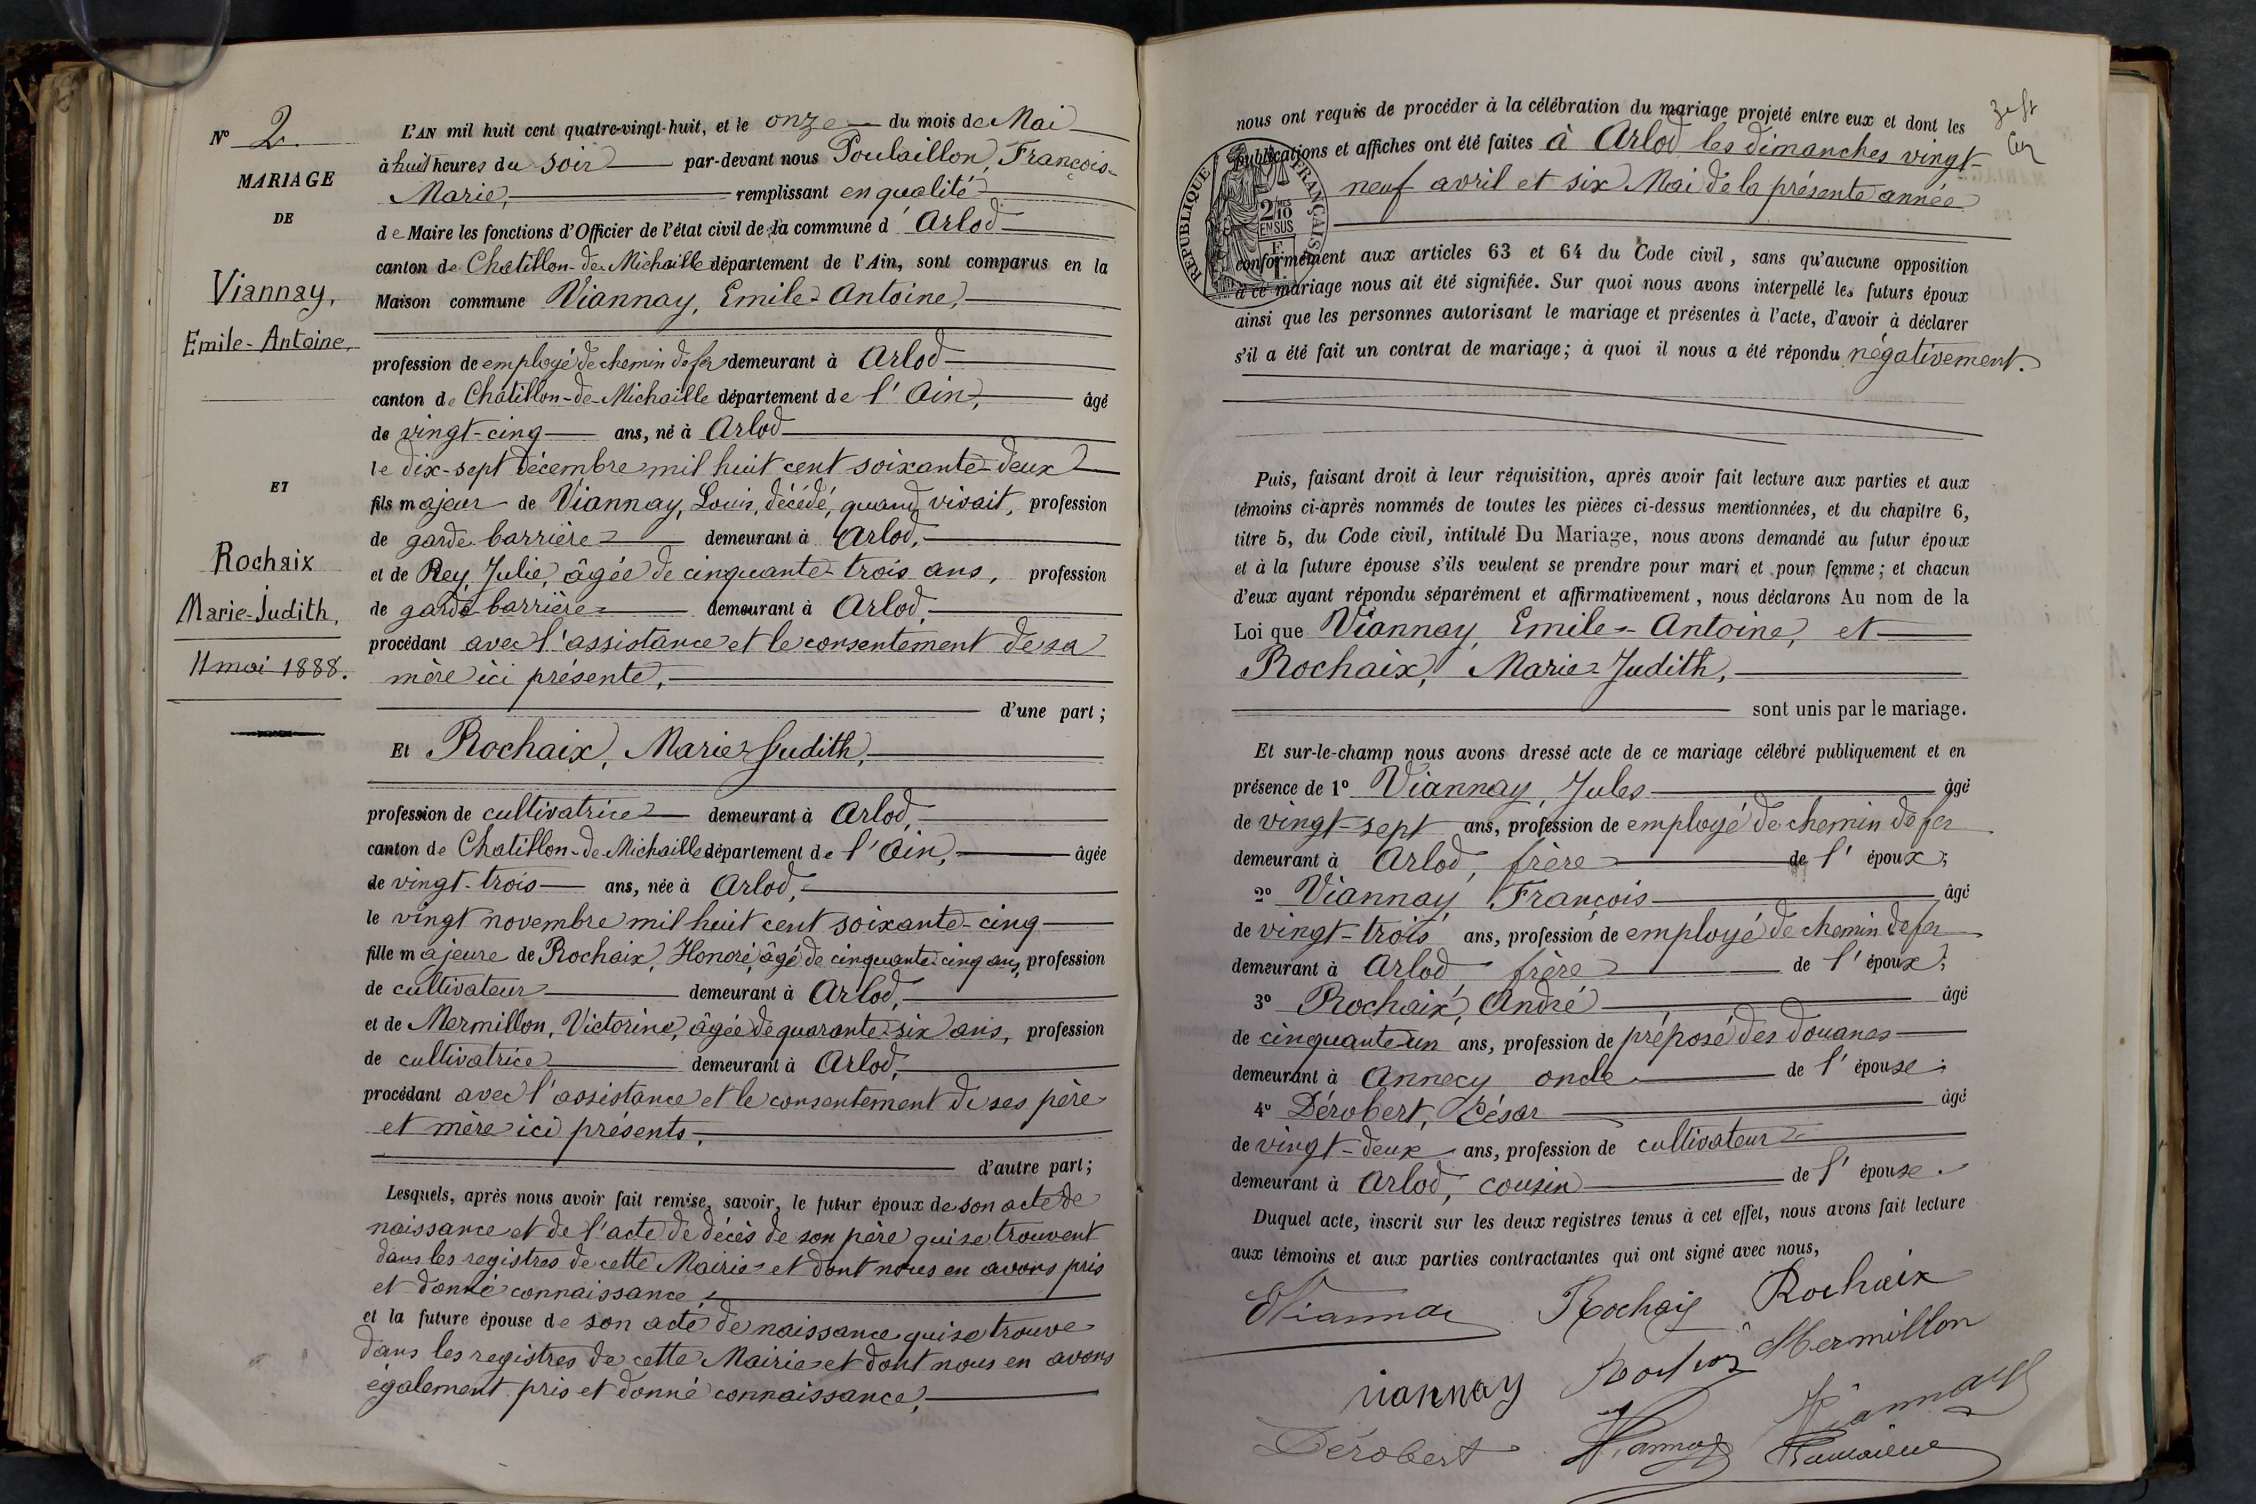 N° 2.
MARIAGE
DE
Viannay,
Emile-Antoine,
ET
Rochaix
Marie-Judith,
11 mai 1888.
L'AN mil huit cent quatre-vingt-huit, et le onze du mois de Mai
à huit heures du soir par-devant nous Poulaillon, François-
Marie, remplissant en qualité
de Maire les fonctions d'Officier de l'état civil de la commune d'Arlod
canton de Chatillon-de-Michaille département de l'Ain, sont comparus en la
Maison commune Viannay, Emile-Antoine,
profession de employé de chemin de fer demeurant à Arlod
canton de Châtillon-de-Michaille département de l'Ain, âgé
de vingt-cinq ans, né à Arlod
le dix-sept décembre mil huit cent soixante-deux
fils majeur de Viannay, Louis, décédé, quand vivait, profession
de garde barrière demeurant à Arlod,
et de Rey, Julie, âgée de cinquante-trois ans, profession
de garde barrière demeurant à Arlod,
procédant avec l'assistance et le consentement de sa
mère ici présente,
d'une part;
Et Rochaix, Marie-Judith,
profession de cultivatrice demeurant à Arlod,
canton de Chatillon-de-Michaille département de l'Ain, âgée
de vingt-trois ans, née à Arlod,
le vingt novembre mil huit cent soixante-cinq
fille majeure de Rochaix, Honoré, âgé de cinquante-cinq ans, profession
de cultivateur demeurant à Arlod,
et de Mermillon, Victorine, âgée de quarante-six ans, profession
de cultivatrice demeurant à Arlod,
procédant avec l'assistance et le consentement de ses père
et mère ici présents,
d'autre part;
Lesquels, après nous avoir fait remise, savoir, le futur époux de son acte de
naissance et de l'acte de décès de son père qui se trouvent
dans les registres de cette Mairie et dont nous en avons pris
et donné connaissance,
et la future épouse de son acte de naissance qui se trouve
dans les registres de cette Mairie et dont nous en avons
également pris et donné connaissance,
nous ont requis de procéder à la célébration du mariage projeté entre eux et dont les
publications et affiches ont été faites à Arlod les dimanches vingt-
neuf avril et six Mai de la présente année
RÉPUBLIQUE FRANÇAISE
2/10 EN SUS
conformément aux articles 63 et 64 du Code civil, sans qu'aucune opposition
à ce mariage nous ait été signifiée. Sur quoi nous avons interpellé les futurs époux
ainsi que les personnes autorisant le mariage et présentes à l'acte, d'avoir à déclarer
s'il a été fait un contrat de mariage; à quoi il nous a été répondu négativement.
Puis, faisant droit à leur réquisition, après avoir fait lecture aux parties et aux
témoins ci-après nommés de toutes les pièces ci-dessus mentionnées, et du chapitre 6,
titre 5, du Code civil, intitulé Du Mariage, nous avons demandé au futur époux
et à la future épouse s'ils veulent se prendre pour mari et pour femme; et chacun
d'eux ayant répondu séparément et affirmativement, nous déclarons Au nom de la
Loi que Viannay, Emile-Antoine, et
Rochaix, Marie-Judith,
sont unis par le mariage.
Et sur-le-champ nous avons dressé acte de ce mariage célébré publiquement et en
présence de 1° Viannay, Jules âgé
de vingt-sept ans, profession de employé de chemin de fer
demeurant à Arlod, frère de l'époux;
2° Viannay François âgé
de vingt-trois ans, profession de employé de chemin de fer
demeurant à Arlod, frère de l'époux;
3° Rochaix, André âgé
de cinquante-un ans, profession de préposé des douanes
demeurant à Annecy oncle de l'épouse;
4° Dérobert, César âgé
de vingt-deux ans, profession de cultivateur
demeurant à Arlod, cousin de l'épouse.
Duquel acte, inscrit sur les deux registres tenus à cet effet, nous avons fait lecture
aux témoins et aux parties contractantes qui ont signé avec nous,
Viannay Rochaix Rochaix
Mermillon
viannay
Viannay
Dérobert Viannay